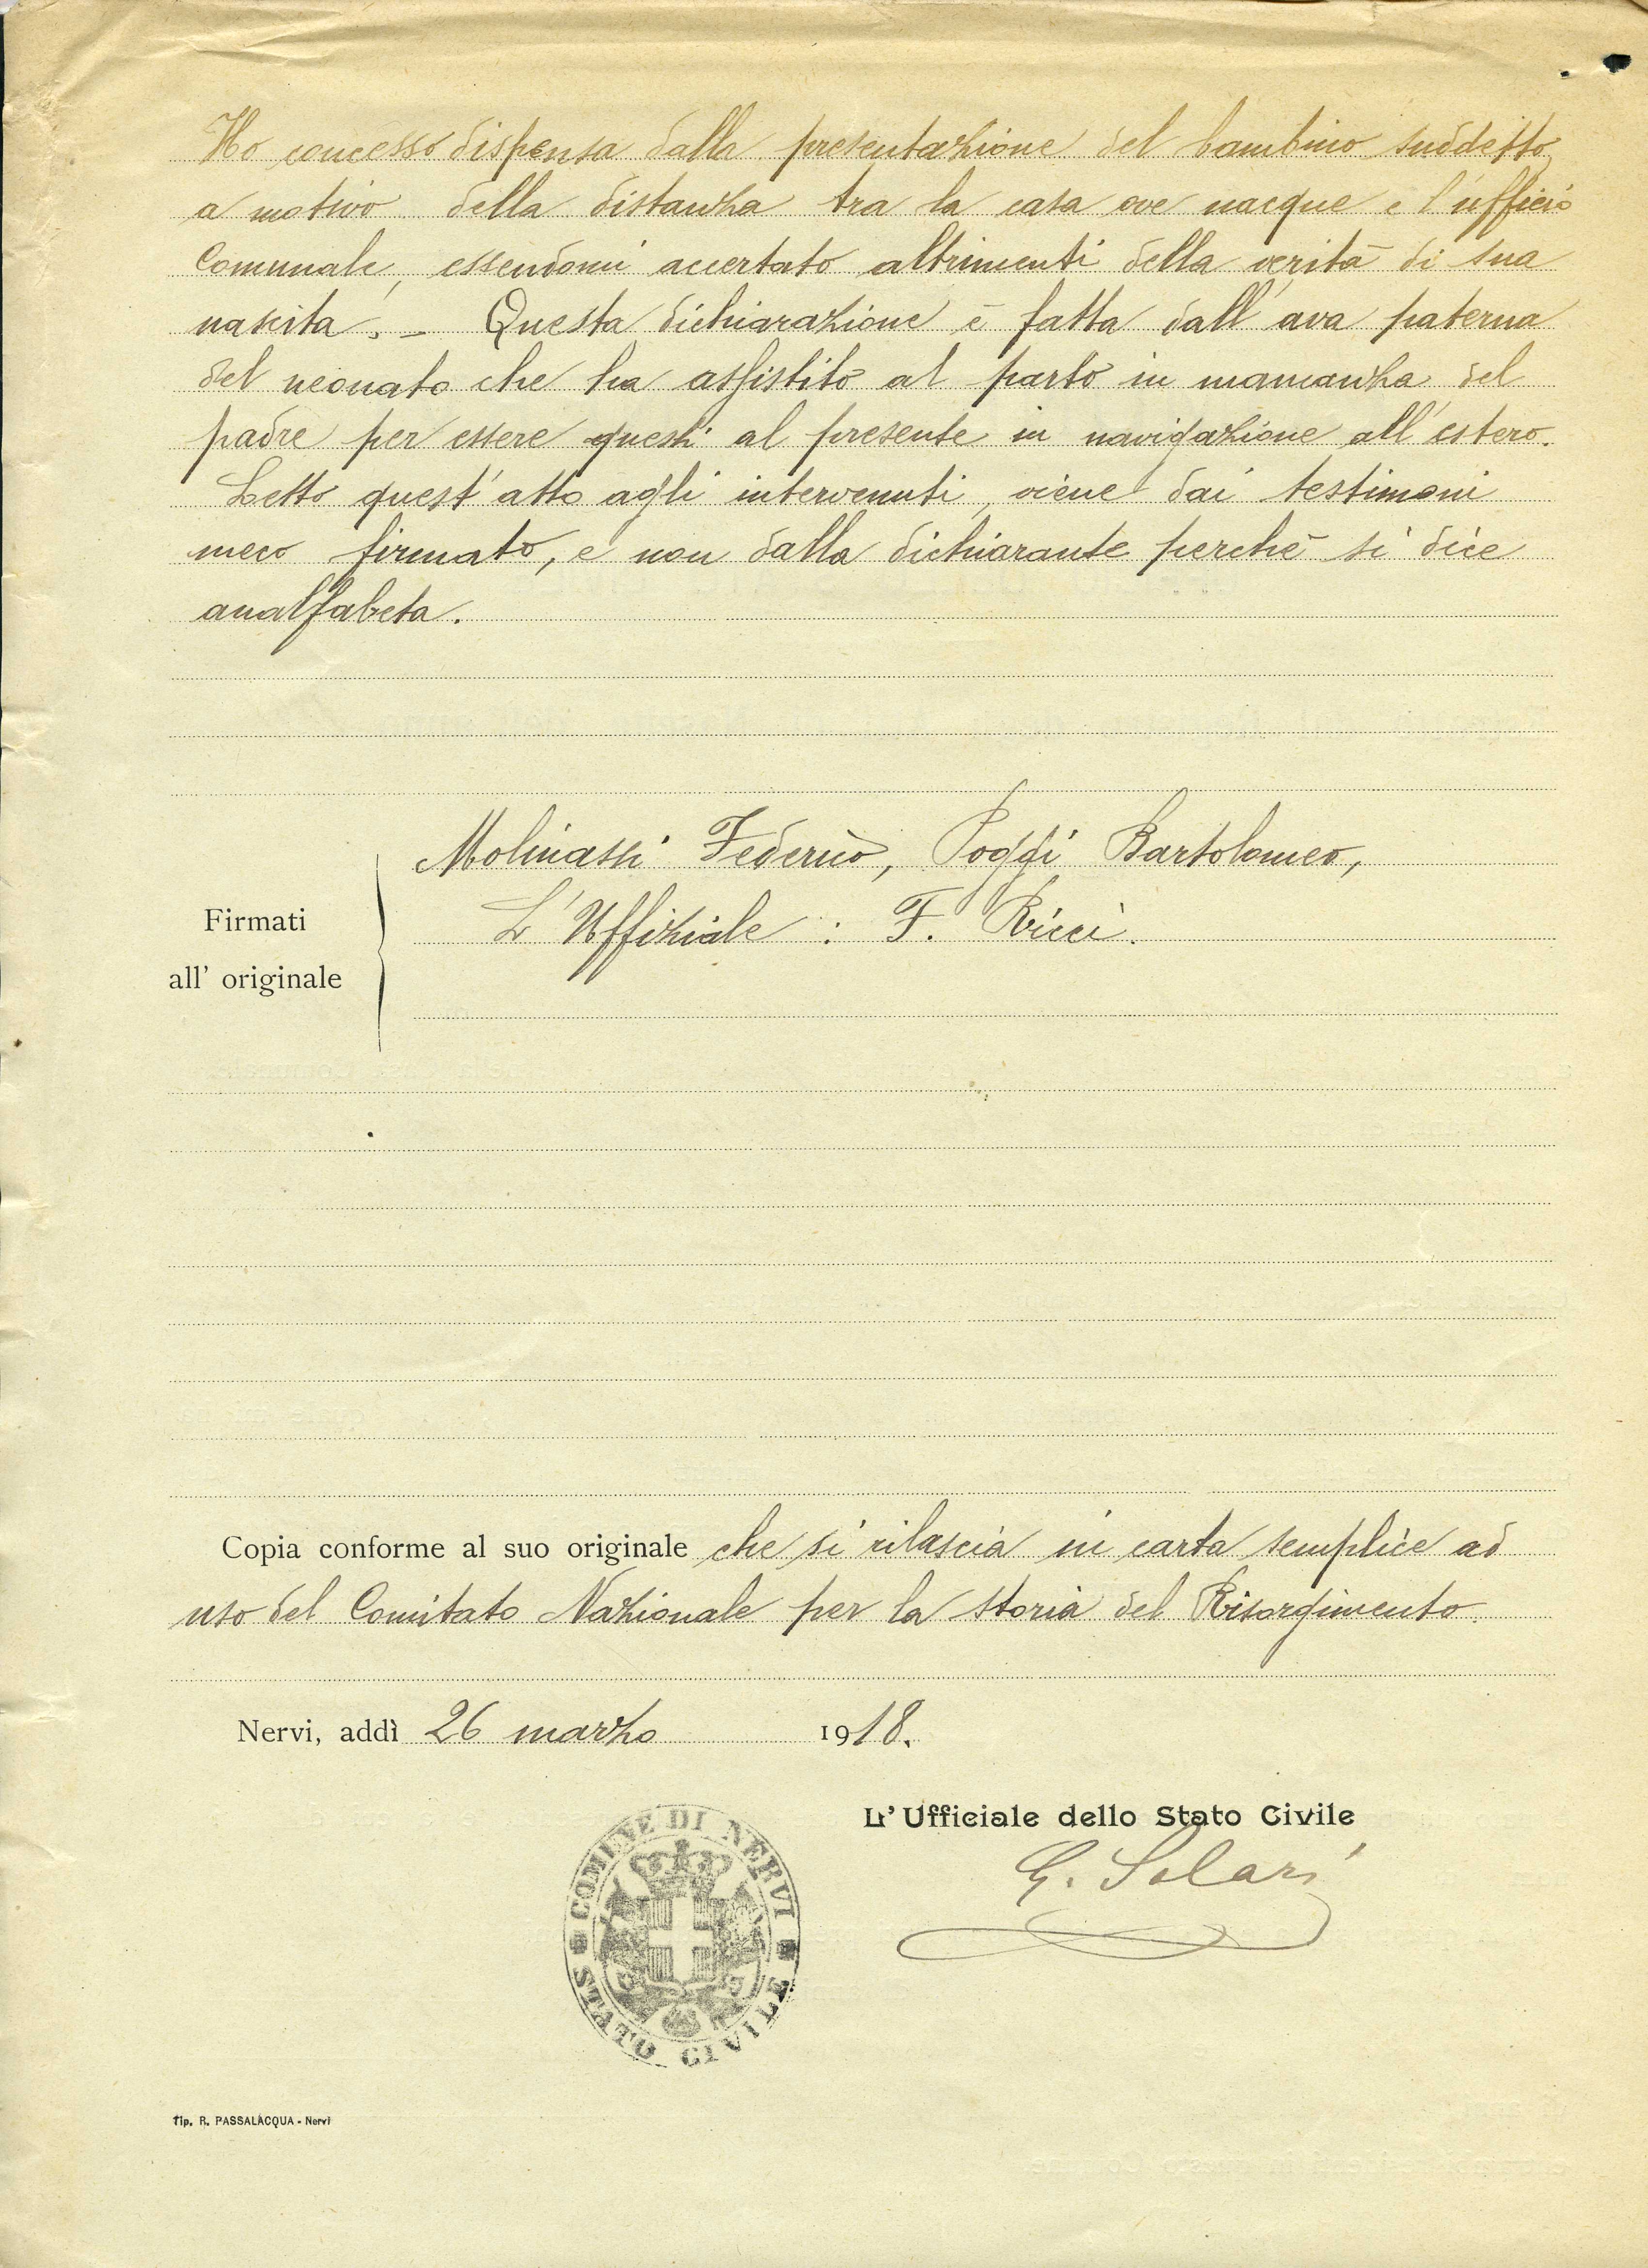 Ho concesso dispensa dalla presentazione del bambino suddetto
a motivo della distanza tra la casa ove nacque e l'ufficio
Comunale, essendomi accertato altrimenti della verità di sua
nascita. - Questa dichiarazione è fatta dall'ava paterna
del neonato che ha assistito al parto in mancanza del
padre per essere questi al presente in navigazione all'estero.
Letto quest'atto agli intervenuti, viene dai testimoni
meco firmato, e non dalla dichiarante perchè si dice
analfabeta.
Firmati
all' originale
Molinassi Federico, Poggi Bartolomeo,
L'Uffiziale : F. Ricci.
Copia conforme al suo originale che si rilascia in carta semplice ad
uso del Comitato Nazionale per la storia del Risorgimento.
Nervi, addì 26 marzo 1918.
L'Ufficiale dello Stato Civile
G. Solari
COMUNE DI NERVI
STATO CIVILE
Tip. R. PASSALACQUA - Nervi